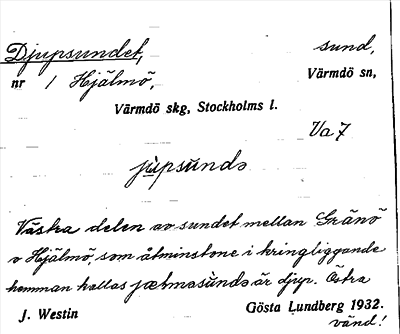 Djupsundet, sund,
nr 1 Hjälmö, Värmdö sn,
Värmdö skg, Stockholms l.
Va 7
jùpsúndə
Västra delen av sundet mellan Gränö
o Hjälmö, som åtminstone i kringliggande
hemman kallas jælməsùndə är djup. Östra
J. Westin Gösta Lundberg 1932.
vänd!